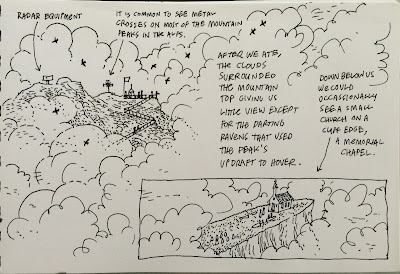 RADAR EQUIPMENT
IT IS COMMON TO SEE METAL
CROSSES ON MOST OF THE MOUNTAIN
PEAKS IN THE ALPS.
AFTER WE ATE,
THE CLOUDS
SURROUNDED
THE MOUNTAIN
TOP GIVING US
LITTLE VIEW EXCEPT
FOR THE DARTING
RAVENS THAT USED
THE PEAK'S
UPDRAFT TO HOVER.
DOWN BELOW US
WE COULD
OCCASSIONALLY
SEE A SMALL
CHURCH ON A
CLIFF EDGE,
A MEMORIAL
CHAPEL.